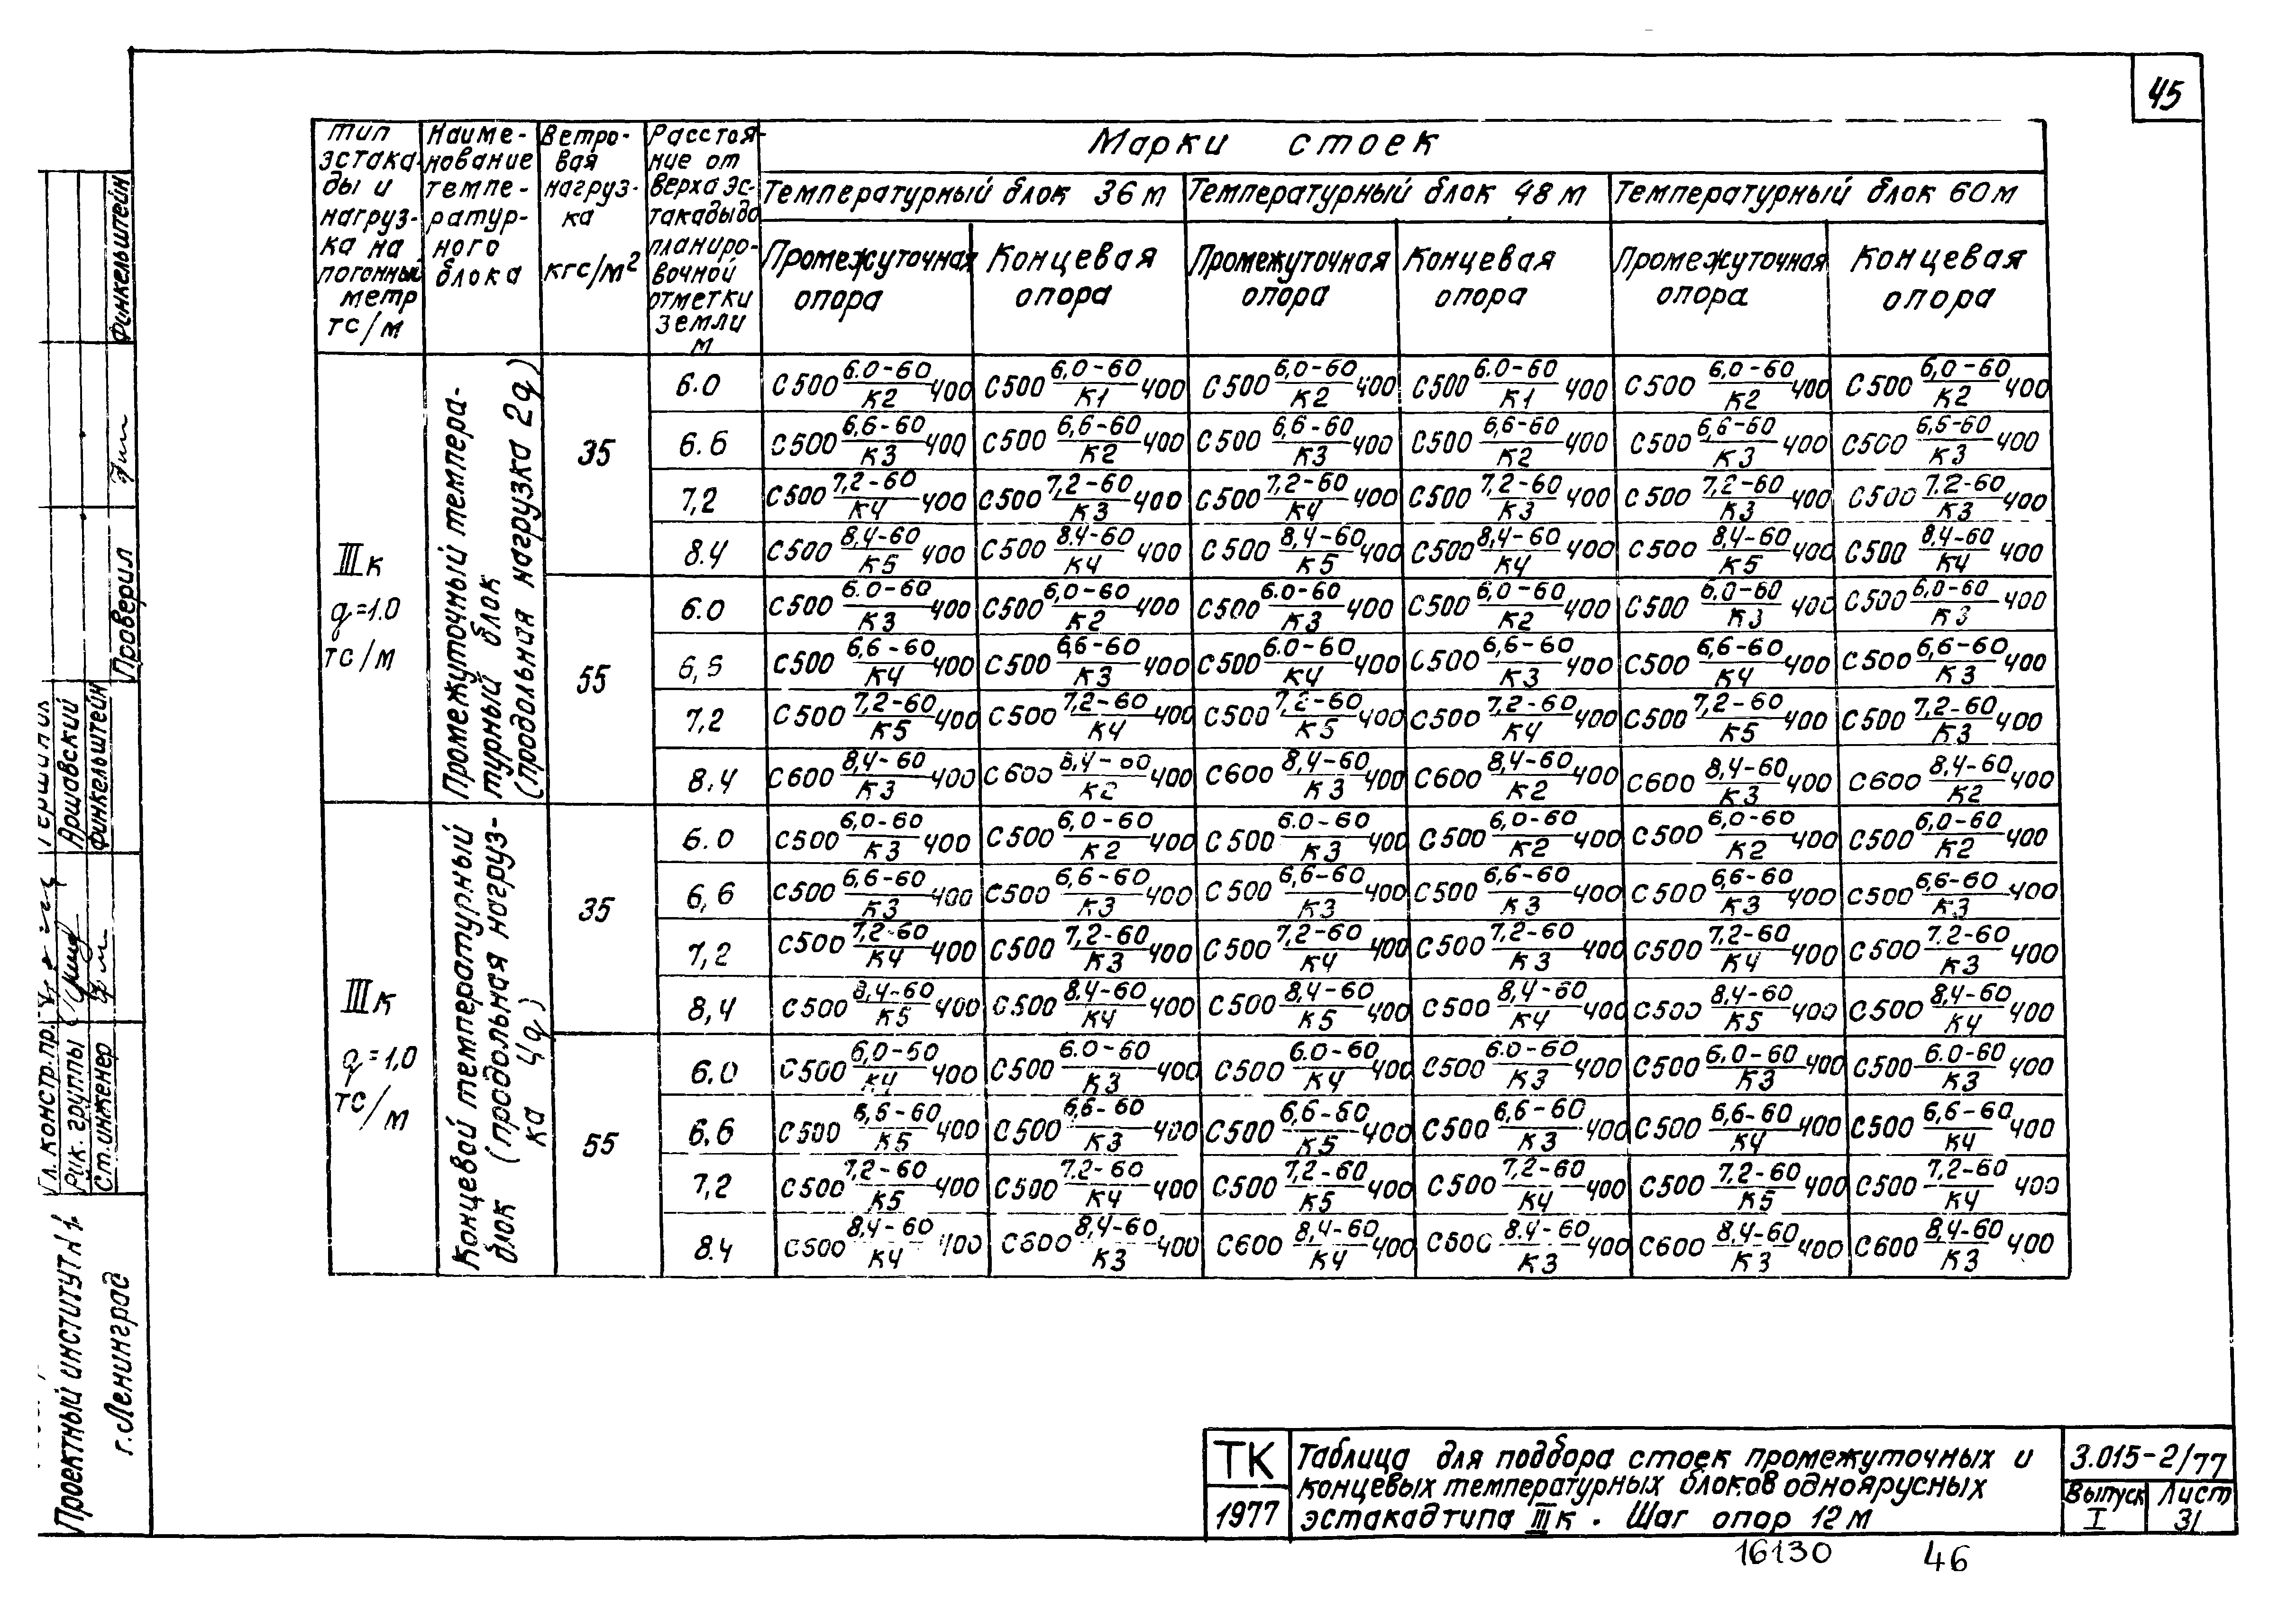 45
Тип эстака-ды и нагруз-ка на погонный метр тс/м
Наиме-нование темпе-ратур-ного блока
Ветро-вая нагруз-ка кгс/м²
Расстоя-ние от верха эс-такады до планиро-вочной отметки земли м
Марки стоек
Температурный блок 36 м
Температурный блок 48 м
Температурный блок 60 м
Промежуточная опора
Концевая опора
Промежуточная опора
Концевая опора
Промежуточная опора
Концевая опора
IIIк
q=1.0
тс/м
Промежуточный темпера-
турный блок
(продольная нагрузка 2q)
35
6.0 С500 6.0-60/К2 400 С500 6,0-60/К1 400 С500 6,0-60/К2 400 С500 6.0-60/К1 400 С500 6,0-60/К2 400 С500 6,0-60/К2 400
6.6 С500 6,6-60/К3 400 С500 6,6-60/К2 400 С500 6,6-60/К3 400 С500 6,6-60/К2 400 С500 6,6-60/К3 400 С500 6,6-60/К3 400
7,2 С500 7,2-60/К4 400 С500 7,2-60/К3 400 С500 7,2-60/К4 400 С500 7,2-60/К3 400 С500 7,2-60/К3 400 С500 7.2-60/К3 400
8.4 С500 8,4-60/К5 400 С500 8.4-60/К4 400 С500 8,4-60/К5 400 С500 8,4-60/К4 400 С500 8,4-60/К5 400 С500 8,4-60/К4 400
55
6.0 С500 6.0-60/К3 400 С500 6,0-60/К2 400 С500 6.0-60/К3 400 С500 6,0-60/К2 400 С500 6.0-60/К3 400 С500 6,0-60/К3 400
6,6 С500 6,6-60/К4 400 С500 6,6-60/К3 400 С500 6.0-60/К4 400 С500 6,6-60/К3 400 С500 6,6-60/К4 400 С500 6,6-60/К3 400
7,2 С500 7,2-60/К5 400 С500 7,2-60/К4 400 С500 7,2-60/К5 400 С500 7,2-60/К4 400 С500 7,2-60/К5 400 С500 7,2-60/К3 400
8.4 С600 8,4-60/К3 400 С600 8,4-60/К2 400 С600 8,4-60/К3 400 С600 8,4-60/К2 400 С600 8,4-60/К3 400 С600 8,4-60/К2 400
IIIк
q=1,0
тс/м
Концевой температурный
блок (продольная нагруз-
ка 4q)
35
6.0 С500 6,0-60/К3 400 С500 6,0-60/К2 400 С500 6.0-60/К3 400 С500 6,0-60/К2 400 С500 6,0-60/К2 400 С500 6,0-60/К2 400
6,6 С500 6,6-60/К3 400 С500 6,6-60/К3 400 С500 6,6-60/К3 400 С500 6,6-60/К3 400 С500 6,6-60/К3 400 С500 6,6-60/К3 400
7,2 С500 7,2-60/К4 400 С500 7,2-60/К3 400 С500 7,2-60/К4 400 С500 7,2-60/К3 400 С500 7,2-60/К4 400 С500 7.2-60/К3 400
8,4 С500 8,4-60/К5 400 С500 8.4-60/К4 400 С500 8,4-60/К5 400 С500 8,4-60/К4 400 С500 8,4-60/К5 400 С500 8,4-60/К4 400
55
6.0 С500 6,0-60/К4 400 С500 6.0-60/К3 400 С500 6.0-60/К4 400 С500 6.0-60/К3 400 С500 6.0-60/К3 400 С500 6.0-60/К3 400
6,6 С500 6,6-60/К5 400 С500 6,6-60/К3 400 С500 6,6-60/К5 400 С500 6,6-60/К3 400 С500 6,6-60/К4 400 С500 6,6-60/К4 400
7,2 С500 7,2-60/К5 400 С500 7.2-60/К4 400 С500 7,2-60/К5 400 С500 7,2-60/К4 400 С500 7,2-60/К5 400 С500 7,2-60/К4 400
8.4 С600 8,4-60/К4 400 С600 8,4-60/К3 400 С600 8,4-60/К4 400 С600 8.4-60/К3 400 С600 8,4-60/К3 400 С600 8,4-60/К3 400
Финкельштейн
Проверил
Аршавский
Финкельштейн
Гл. констр. пр.
Рук. группы
Ст. инженер
Проектный институт №1
г. Ленинград
ТК
1977
Таблица для подбора стоек промежуточных и
концевых температурных блоков одноярусных
эстакад типа IIIк. Шаг опор 12 м
3.015-2/77
Выпуск I
Лист 31
16130 46